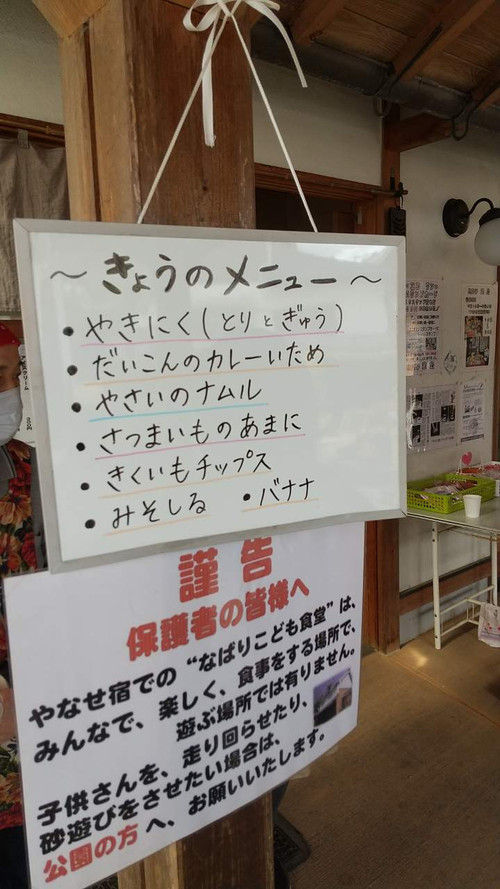 ～きょうのメニュー～
• やきにく(とりとぎゅう)
• だいこんのカレーいため
• やさいのナムル
• さつまいものあまに
• きくいもチップス
• みそしる • バナナ
謹告
保護者の皆様へ
やなせ宿での“なばりこども食堂”は、
みんなで、楽しく、食事をする場所で、
遊ぶ場所では有りません。
子供さんを、走り回らせたり、
砂遊びをさせたい場合は、
公園の方へ、お願いいたします。